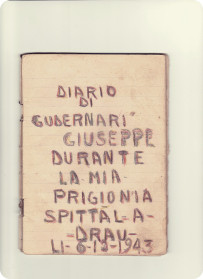 DIARIO
DI
GUDERNARI
GIUSEPPE
DURANTE
LA MIA
PRIGIONIA
SPITTAL-A-
-DRAU-
LI-6-12-1943